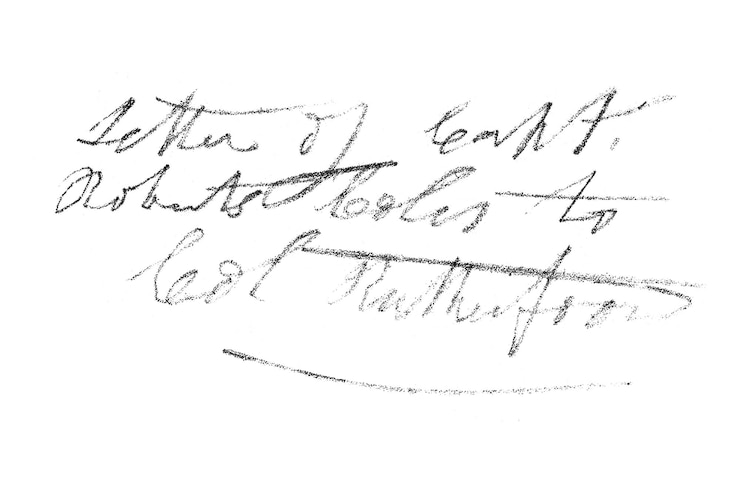 Letter of Capt.
Robert Coles to
Col Rutherfoord